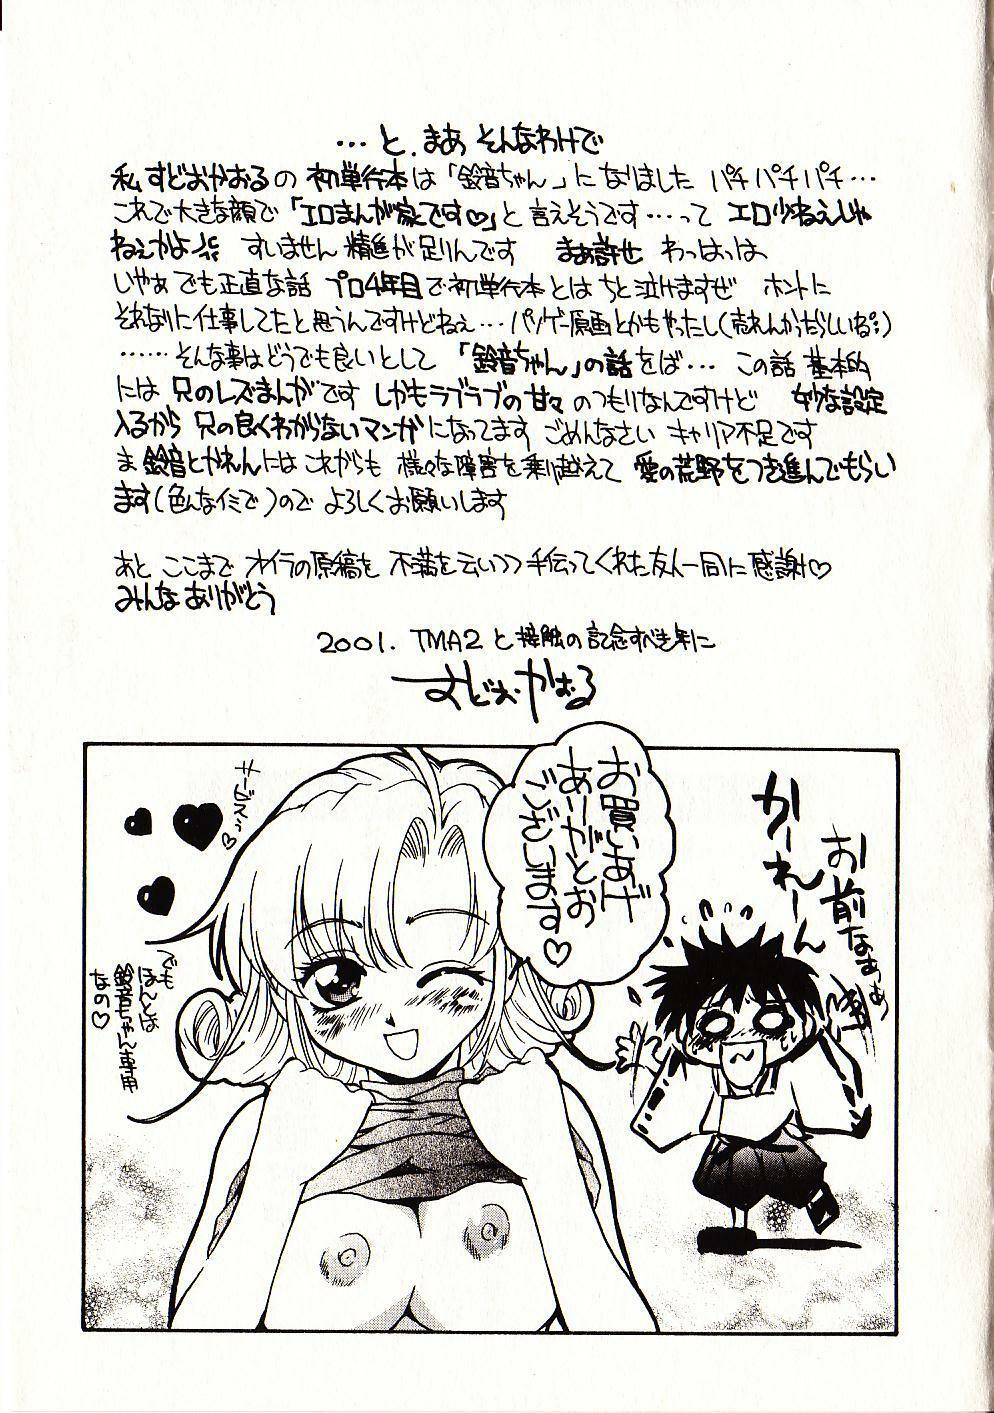 … と、まあ そんなわけで
私 すどおかおる の 初単行本は「鈴音ちゃん」になりました パチパチパチ…
これで大きな顔で「エロまんが家です♡」と言えそうです…って エロ少ねえじゃ
ねえかよ すいません 精進が足りんです まぁ許せ わっはっは
いやぁ でも正直な話 プロ4年目で初単行本とは ちと泣けますぜ ホントに
それなりに仕事してたと思うんですけどねぇ… パソゲー原画とかもやったし(売れんかったらしいね)
……そんな事はどうでも良いとして 「鈴音ちゃん」の話をば… この話 基本的
には 兄のレズまんがです しかもラブラブの甘々 のつもりなんですけど 妙な設定
入るから 兄の良くわからないマンガになってます ごめんなさい キャリア不足です
ま 鈴音とかれんには これからも 様々な障害を乗り越えて 愛の荒野をつき進んでもらい
ます(色んなイミで)ので よろしくお願いします
あと ここまで オイラの原稿を 不満を云いつつ手伝ってくれた友人一同に感謝♡
みんなありがとう
2001. TMA2 と接触の記念すべき年に
すどおかおる
お買いあげ
ありがとお
ございます♡
かーれーん
お前なぁぁ
サービスっ♡
でも
ほんとは
鈴音ちゃん専用
なの♡